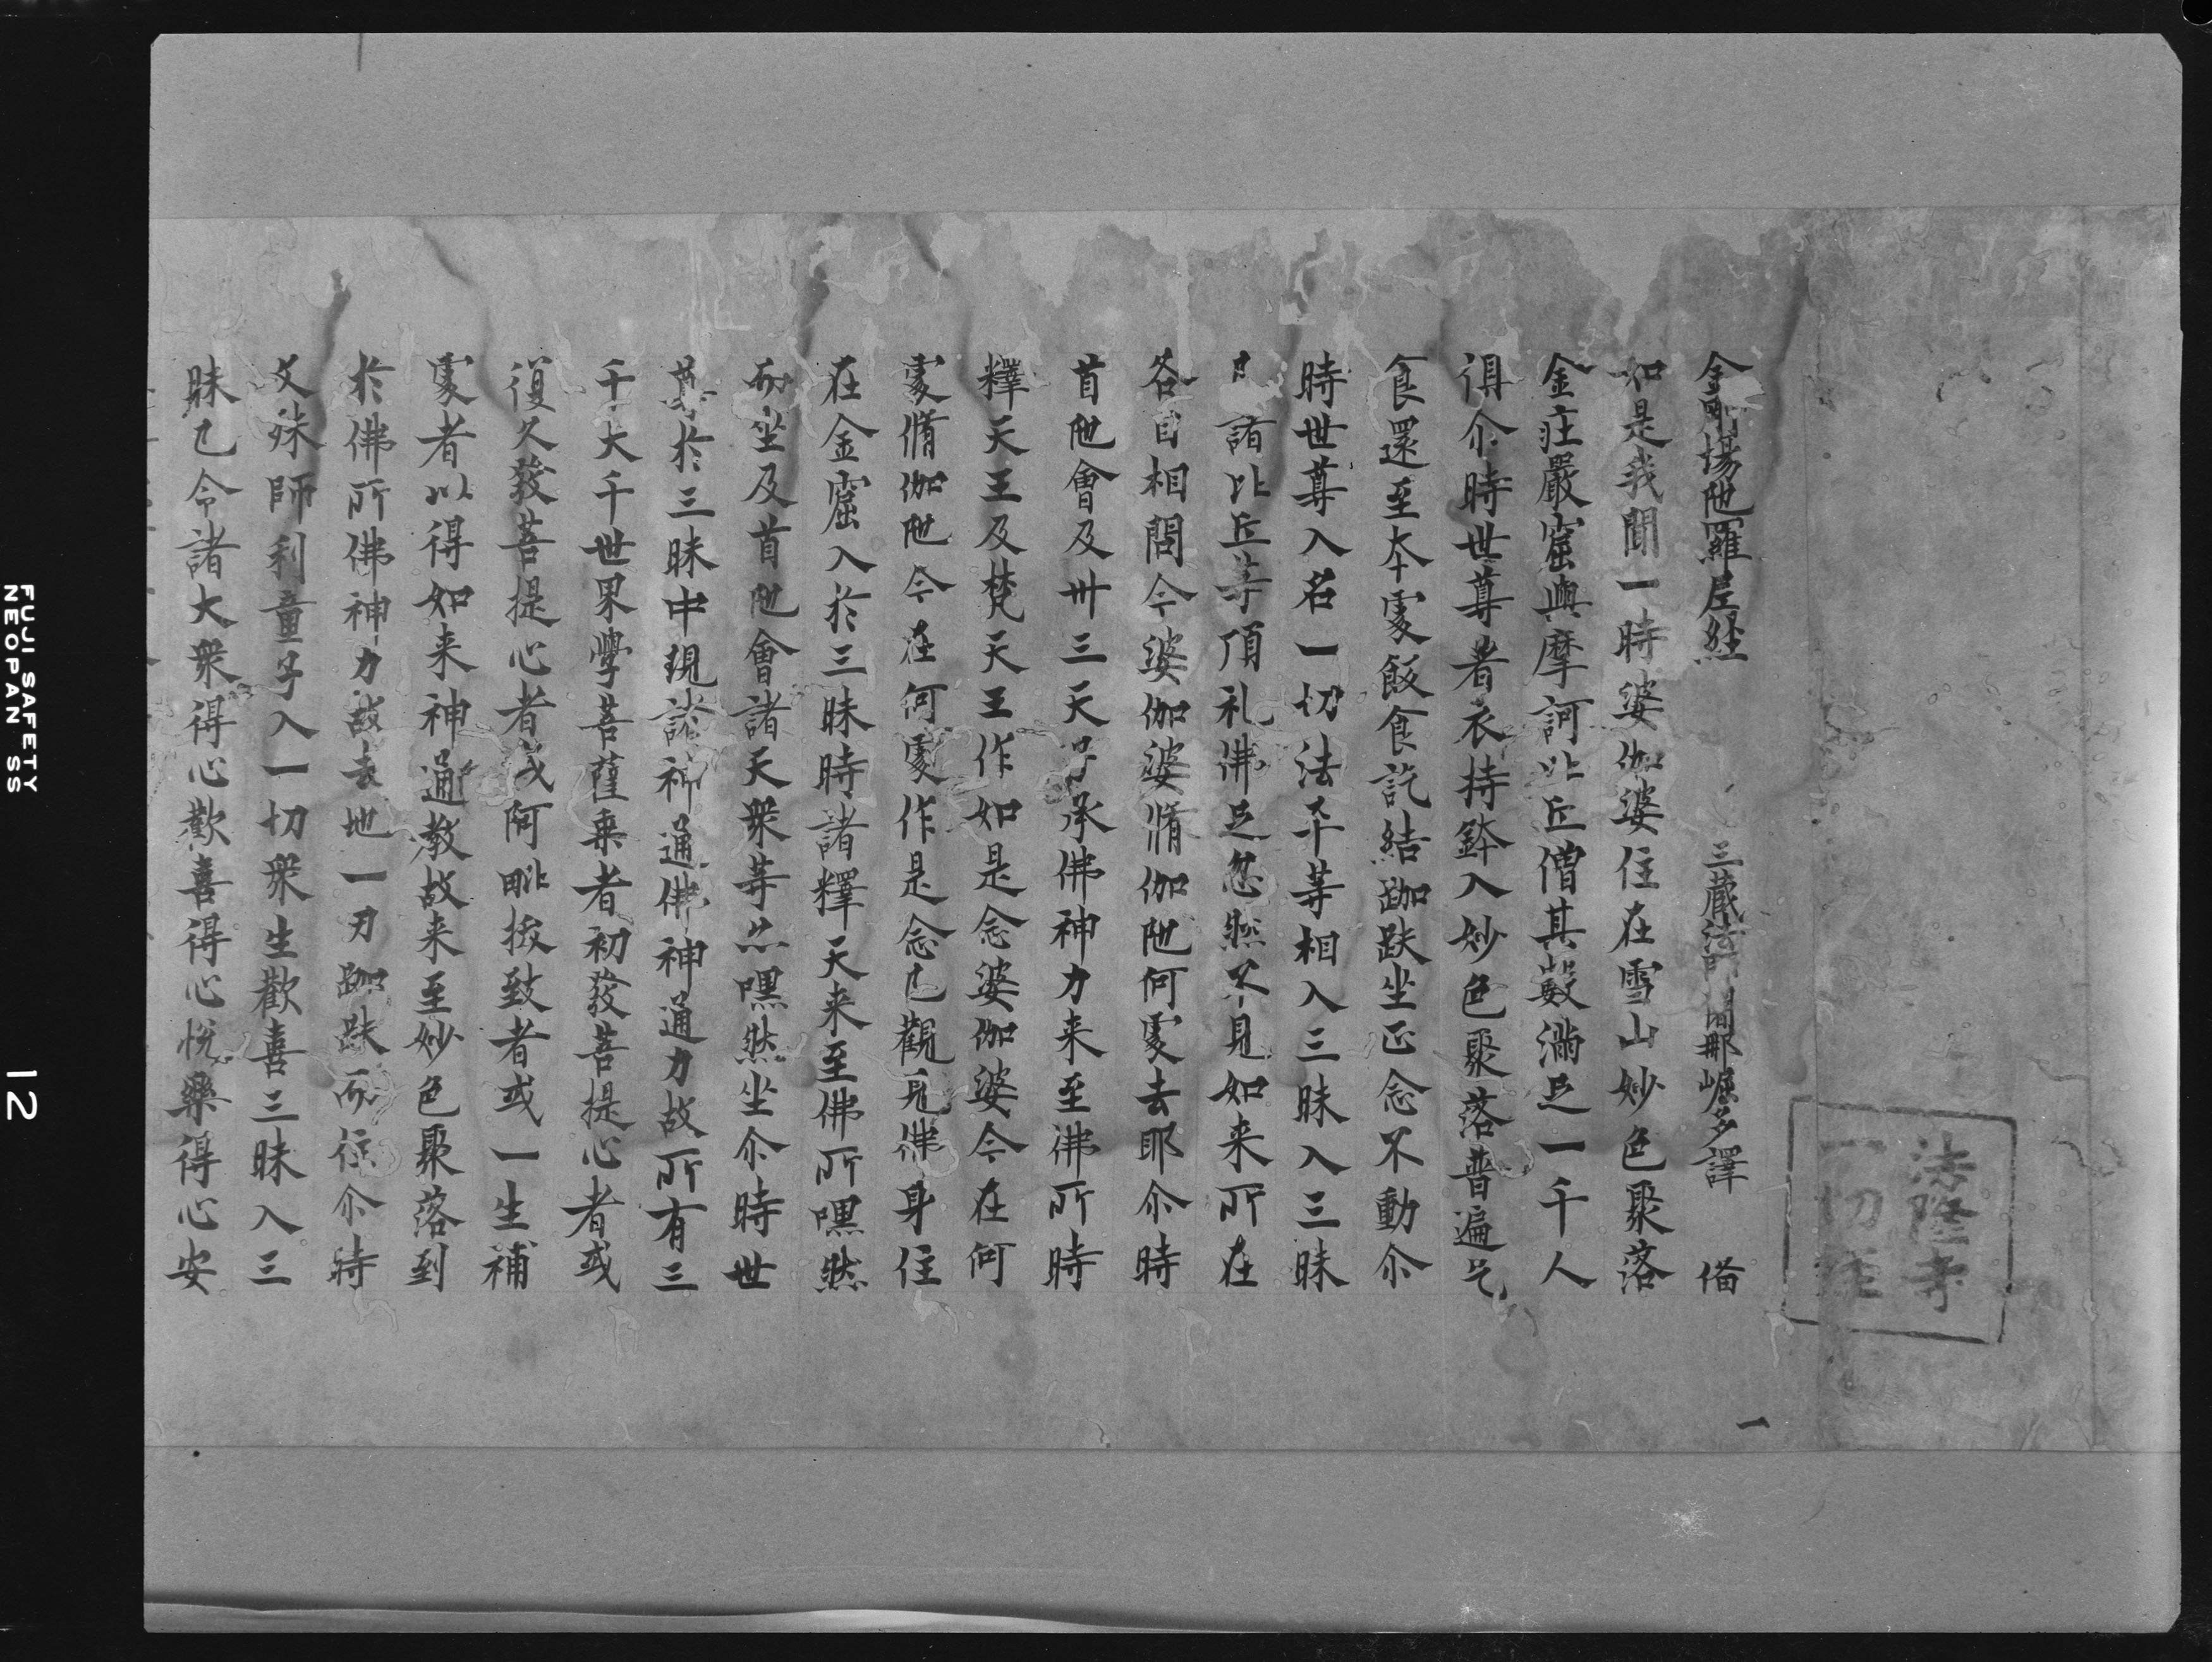 法隆寺
一切経
金剛場陁羅尼経 三蔵法師闍那崛多譯 偹
如是我聞一時婆伽婆住在雪山妙色聚落
金莊嚴窟與摩訶比丘僧其數滿足一千人
俱尒時世尊著衣持鉢入妙色聚落普遍乞
食還至本處飯食訖結跏趺坐正念不動尒
時世尊入名一切法平等相入三昧入三昧
已諸比丘等頂礼佛足忽然不見如来所在
各自相問今婆伽婆脩伽陁何處去耶尒時
首陁會及卅三天子承佛神力来至佛所時
釋天王及梵天王作如是念婆伽婆今在何
處脩伽陁今在何處作是念已觀見佛身住
在金窟入於三昧時諸釋天来至佛所嘿然
而坐及首陁會諸天衆等亦嘿然坐尒時世
尊於三昧中現諸神通佛神通力故所有三
千大千世界學菩薩乗者初發菩提心者或
復久發菩提心者或阿毗拔致者或一生補
處者以得如来神通教故来至妙色聚落到
於佛所佛神力故去地一刃跏趺而住尒時
文殊師利童子入一切衆生歡喜三昧入三
昧已令諸大衆得心歡喜得心悅樂得心安
一
FUJI SAFETY
NEOPAN SS
12